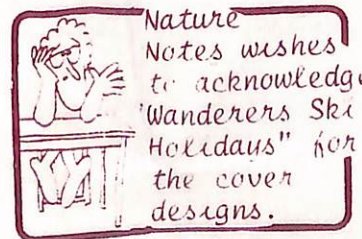 Nature
Notes wishes
to acknowledge
"Wanderers Ski
Holidays" for
the cover
designs.